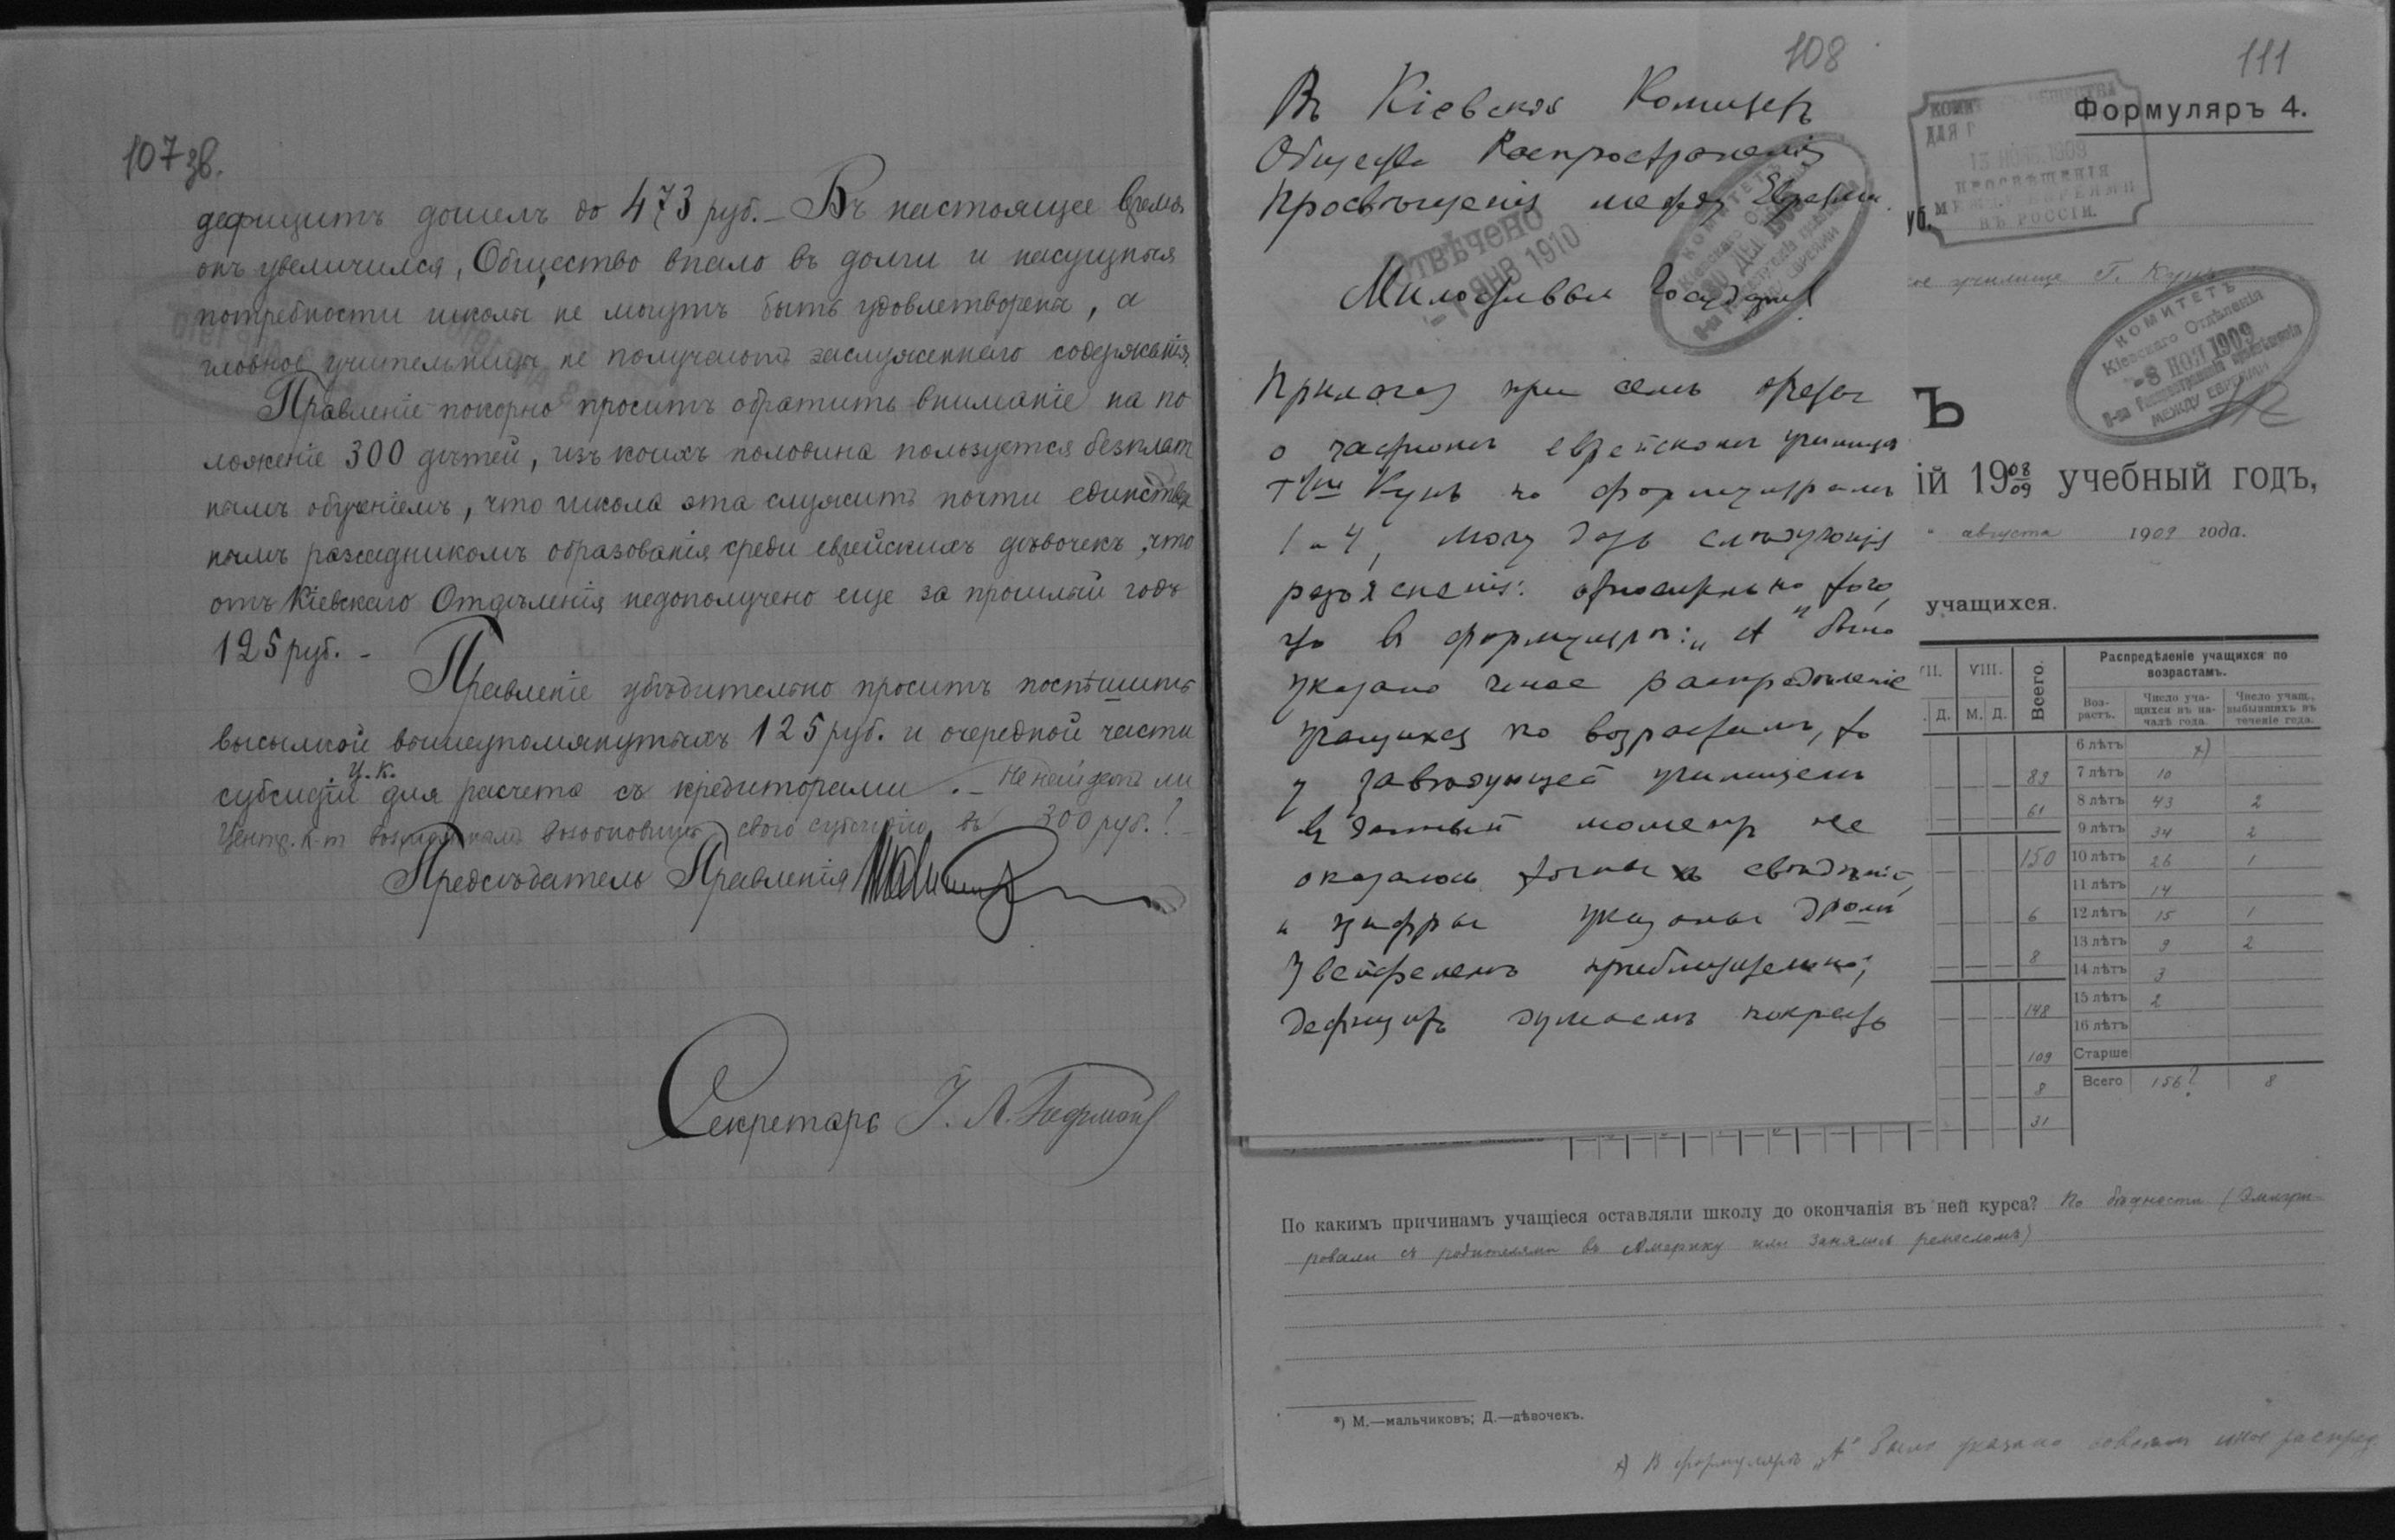 107 зв.
дефицитъ дошелъ до 473 руб. – Въ настоящее время
онъ увеличился, Общество впало въ долги и насущныя
потребности школы не могутъ быть удовлетворены, а
главное учительницы не получаютъ заслуженнаго содержанія.
Правленіе покорно проситъ обратить вниманіе на по
ложеніе 300 дѣтей, изъ коихъ половина пользуется безплат
нымъ обученіемъ, что школа эта служитъ почти единствен
нымъ разсадникомъ образованія среди еврейскихъ дѣвочекъ, что
отъ Кіевскаго Отдѣленія недополучено еще за прошлый годъ
125 руб. –
Правленіе убѣдительно проситъ поспѣшить
высылкой вышеупомянутыхъ 125 руб. и очередной части
Ц. К.
субсидіи для расчета съ кредиторами. – Не найдетъ ли
Центр. К-т возобновить свою субсидію въ 300 руб.?
Предсѣдатель Правленія
Секретарь
108
Въ Кіевскій Комитетъ
Общества Распространенія
Просвѣщенія между Евреями.
ОТВѢЧЕНО
- ЯНВ 1910
КОМИТЕТЪ
Милостивые Государи!
Прилагая при семъ отчетъ
о частномъ еврейскомъ училищѣ
г-жи Кунъ по формулярамъ
1–4, могу дать слѣдующія
разъясненія: относительно того,
что въ формулярѣ: „А" было
указано иное распредѣленіе
учащихся по возрастамъ, то
у завѣдующей училищемъ
въ данный моментъ не
оказалось точныхъ свѣдѣній,
и цифры указаны
приблизительно;
дефицитъ думаемъ покрыть
111
Формуляръ 4.
КОМИ ОБЩЕСТВА
ДЛЯ Р
1909
ПРОСВѢЩЕНІЯ
МЕЖДУ ЕВРЕЯМИ
ВЪ РОССІИ.
уб.
ое училище Г. Кунъ
КОМИТЕТЪ
Кіевскаго Отдѣленія
-8 НОЯ 1909
О-ва Распространенія просвѣщенія
МЕЖДУ ЕВРЕЯМИ
Ъ
ій 19 08/09 учебный годъ,
" августа 1909 года.
учащихся.
VII. VIII. Всего. Распредѣленіе учащихся по возрастамъ.
Д. М. Д. Воз-растъ. Число уча-щихся въ на-чалѣ года. Число учащ., выбывшихъ въ теченіе года.
6 лѣтъ x)
89 7 лѣтъ 10
61 8 лѣтъ 43 2
9 лѣтъ 34 2
150 10 лѣтъ 26 1
11 лѣтъ 14
6 12 лѣтъ 15 1
13 лѣтъ 9 2
8 14 лѣтъ 3
15 лѣтъ 2
148 16 лѣтъ
109 Старше
8 Всего 156? 8
31
По какимъ причинамъ учащіеся оставляли школу до окончанія въ ней курса? По бѣдности (Эмигри-
ровали съ родителями въ Америку или занялись ремесломъ)
*) М.—мальчиковъ; Д.—дѣвочекъ.
x) В формулярѣ „А" было указано совсѣмъ иное распред